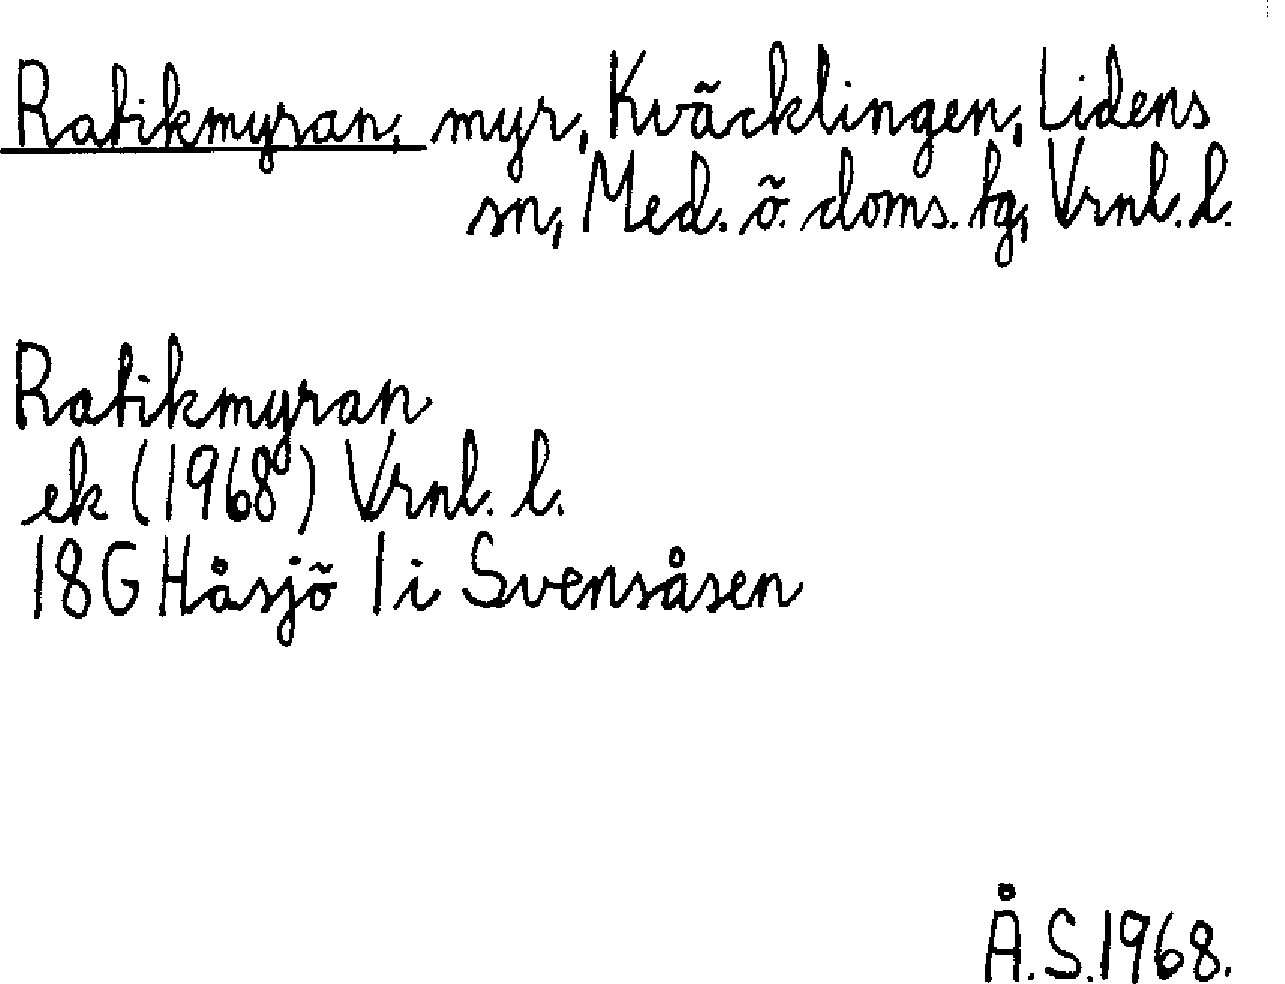 Ratikmyran, myr, Kväcklingen, Lidens
sn, Med. ö. doms. tg, Vrnl. l.
Ratikmyran
ek (1968) Vrnl. l.
18G Håsjö 1 i Svensåsen
Å.S.1968.